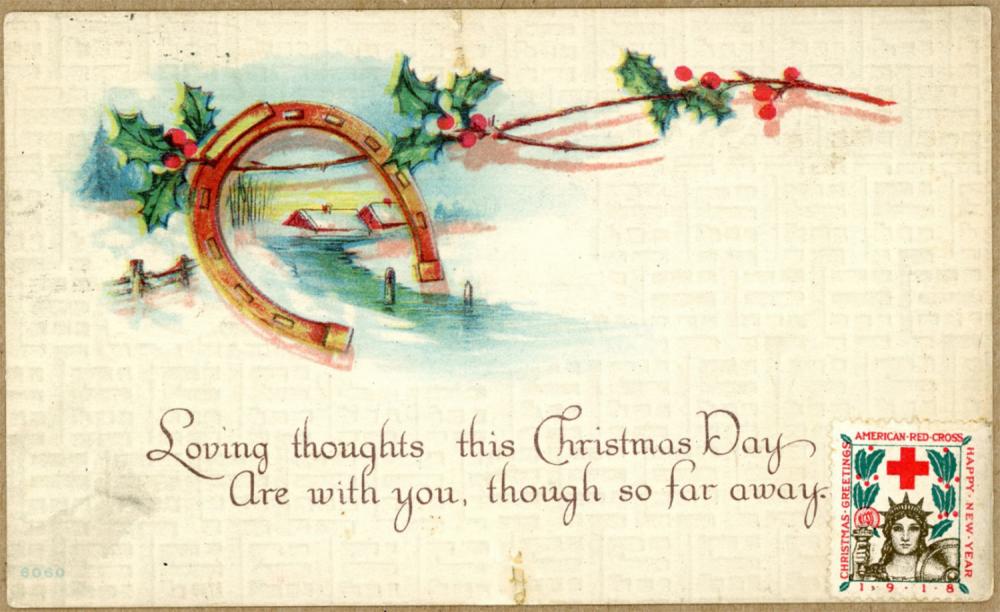 Loving thoughts this Christmas Day
Are with you, though so far away.
AMERICAN·RED·CROSS
CHRISTMAS·GREETINGS
HAPPY·NEW·YEAR
1·9·1·8
6060